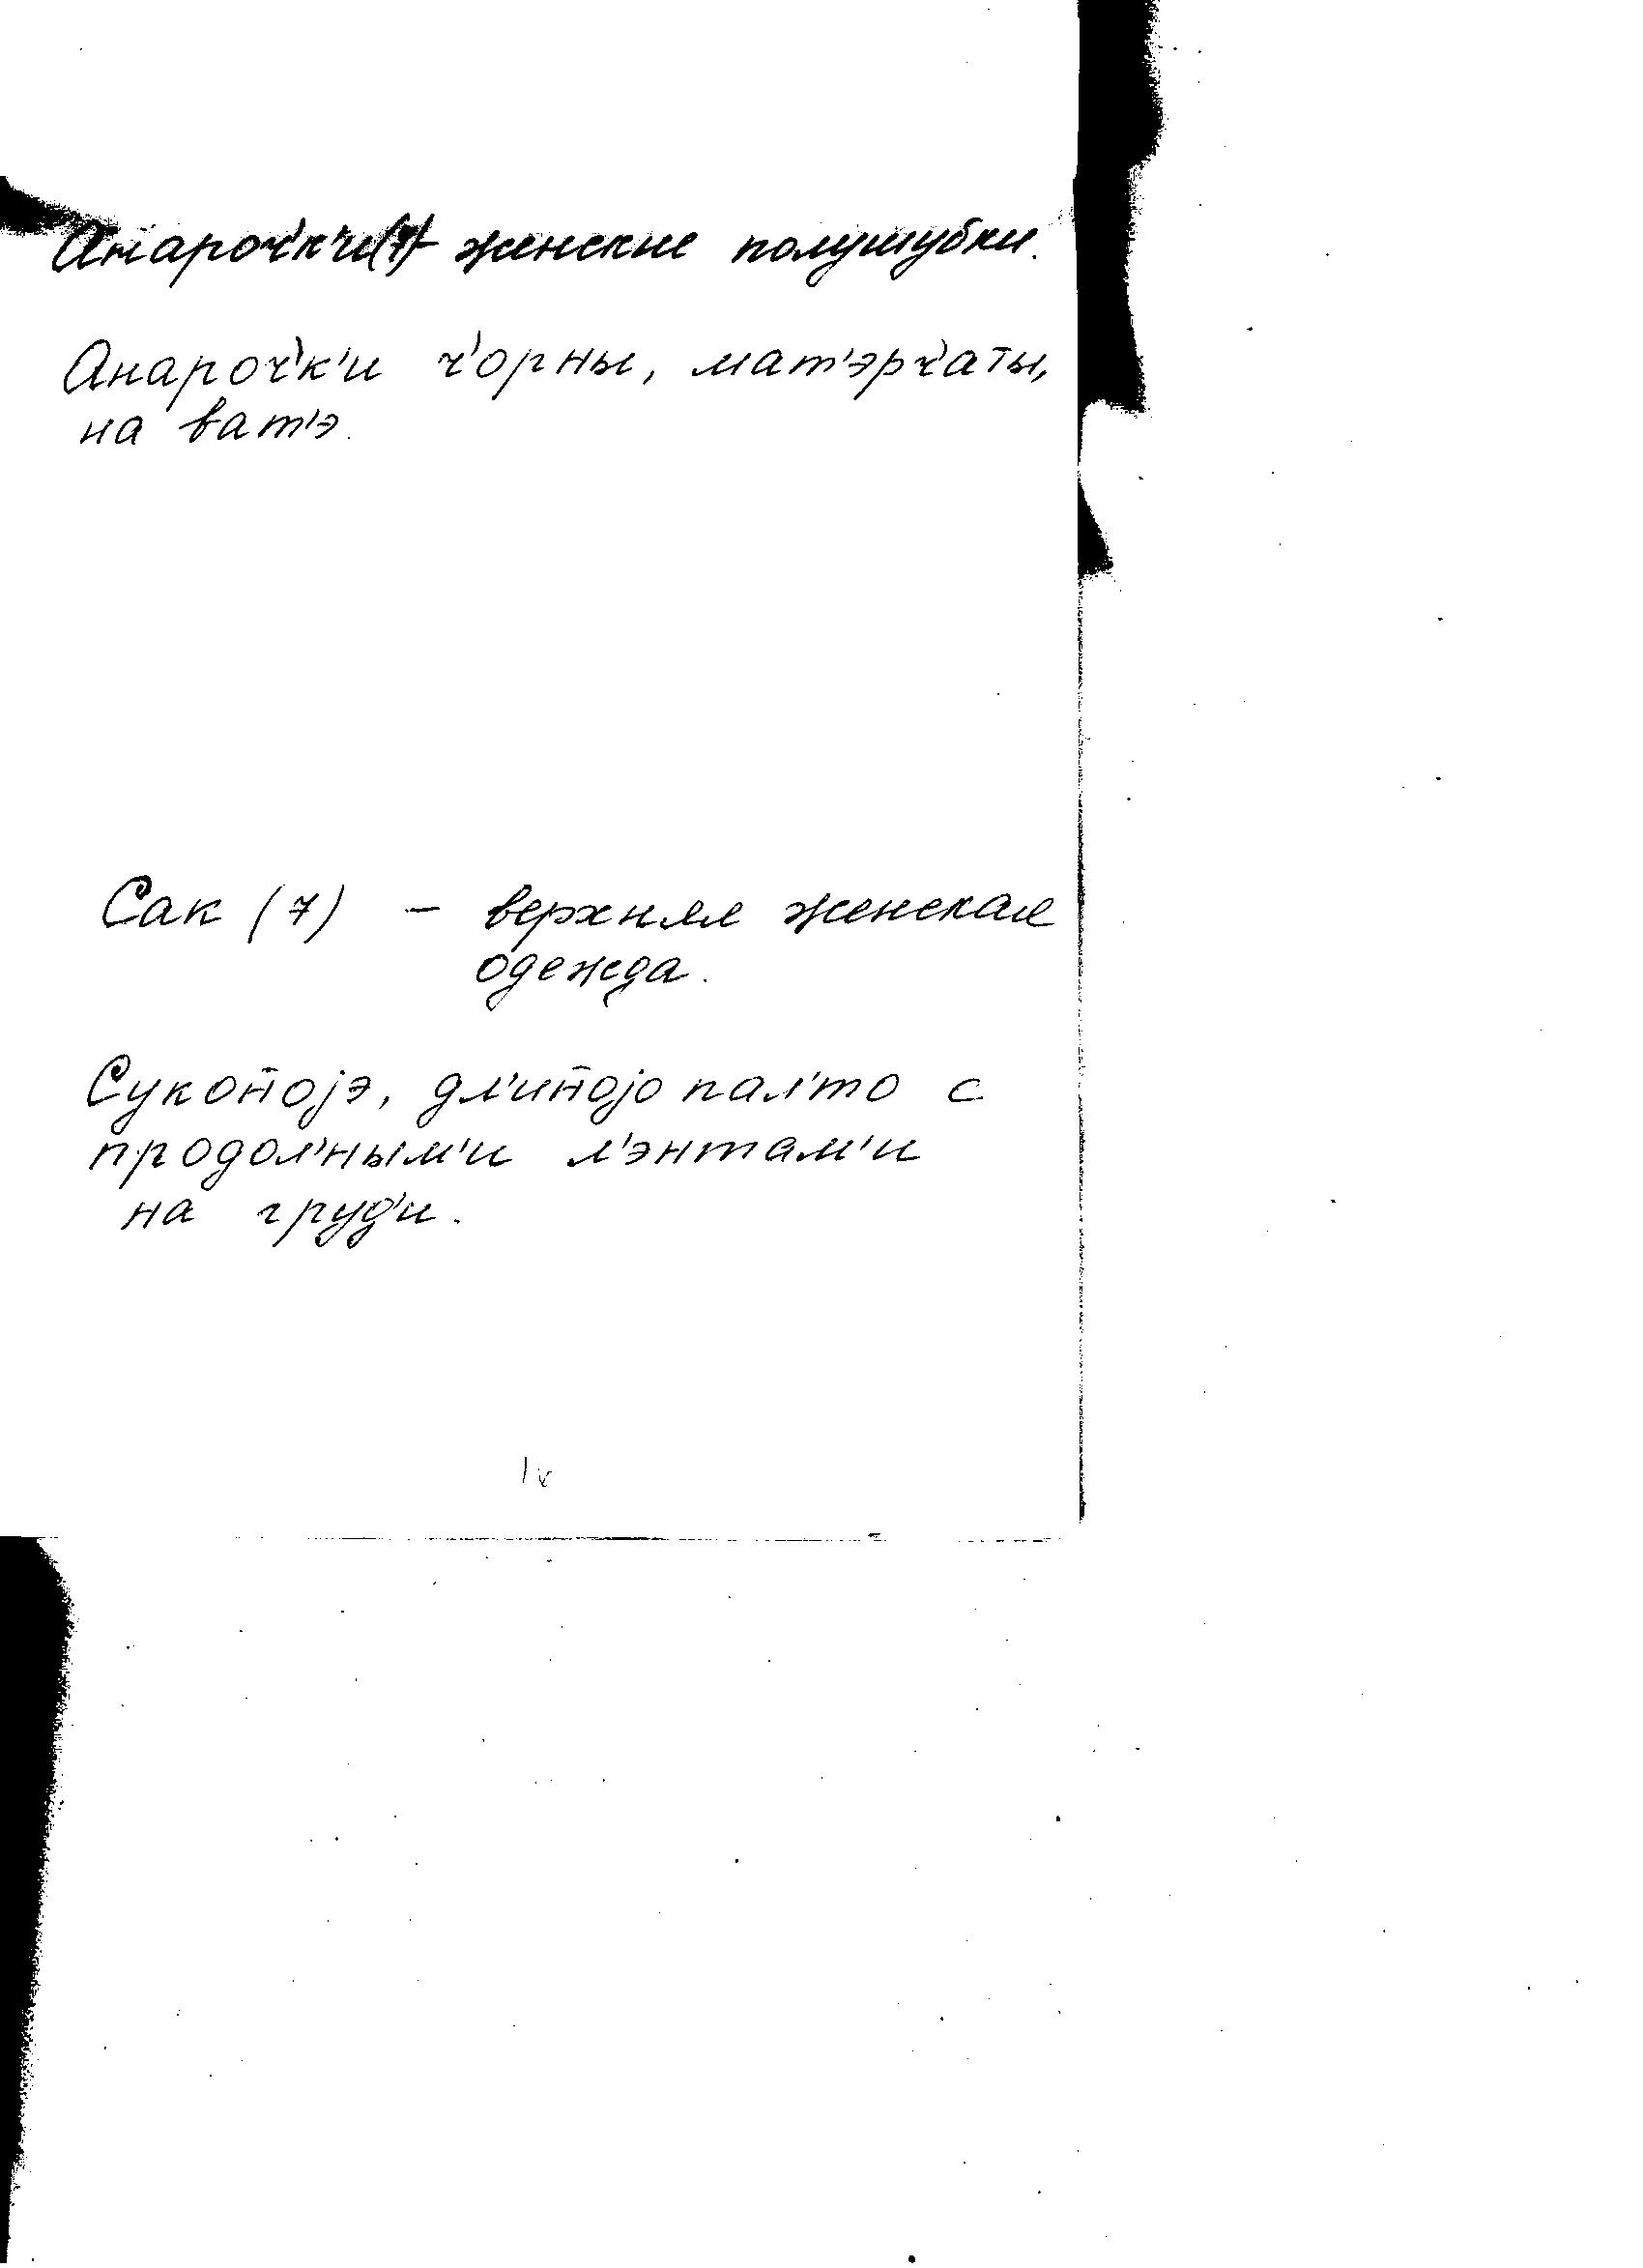 Анароч'к'и (7) – женские полушубки.
Анароч'к'и ч'орны, мат'эрч'аты,
на ват'э.
Сак (7) – верхняя женская
одежда.
Сукон̄ојэ, дл'ин̄ојо пал'то с
продол'ным'и л'энтам'и
на груд'и.